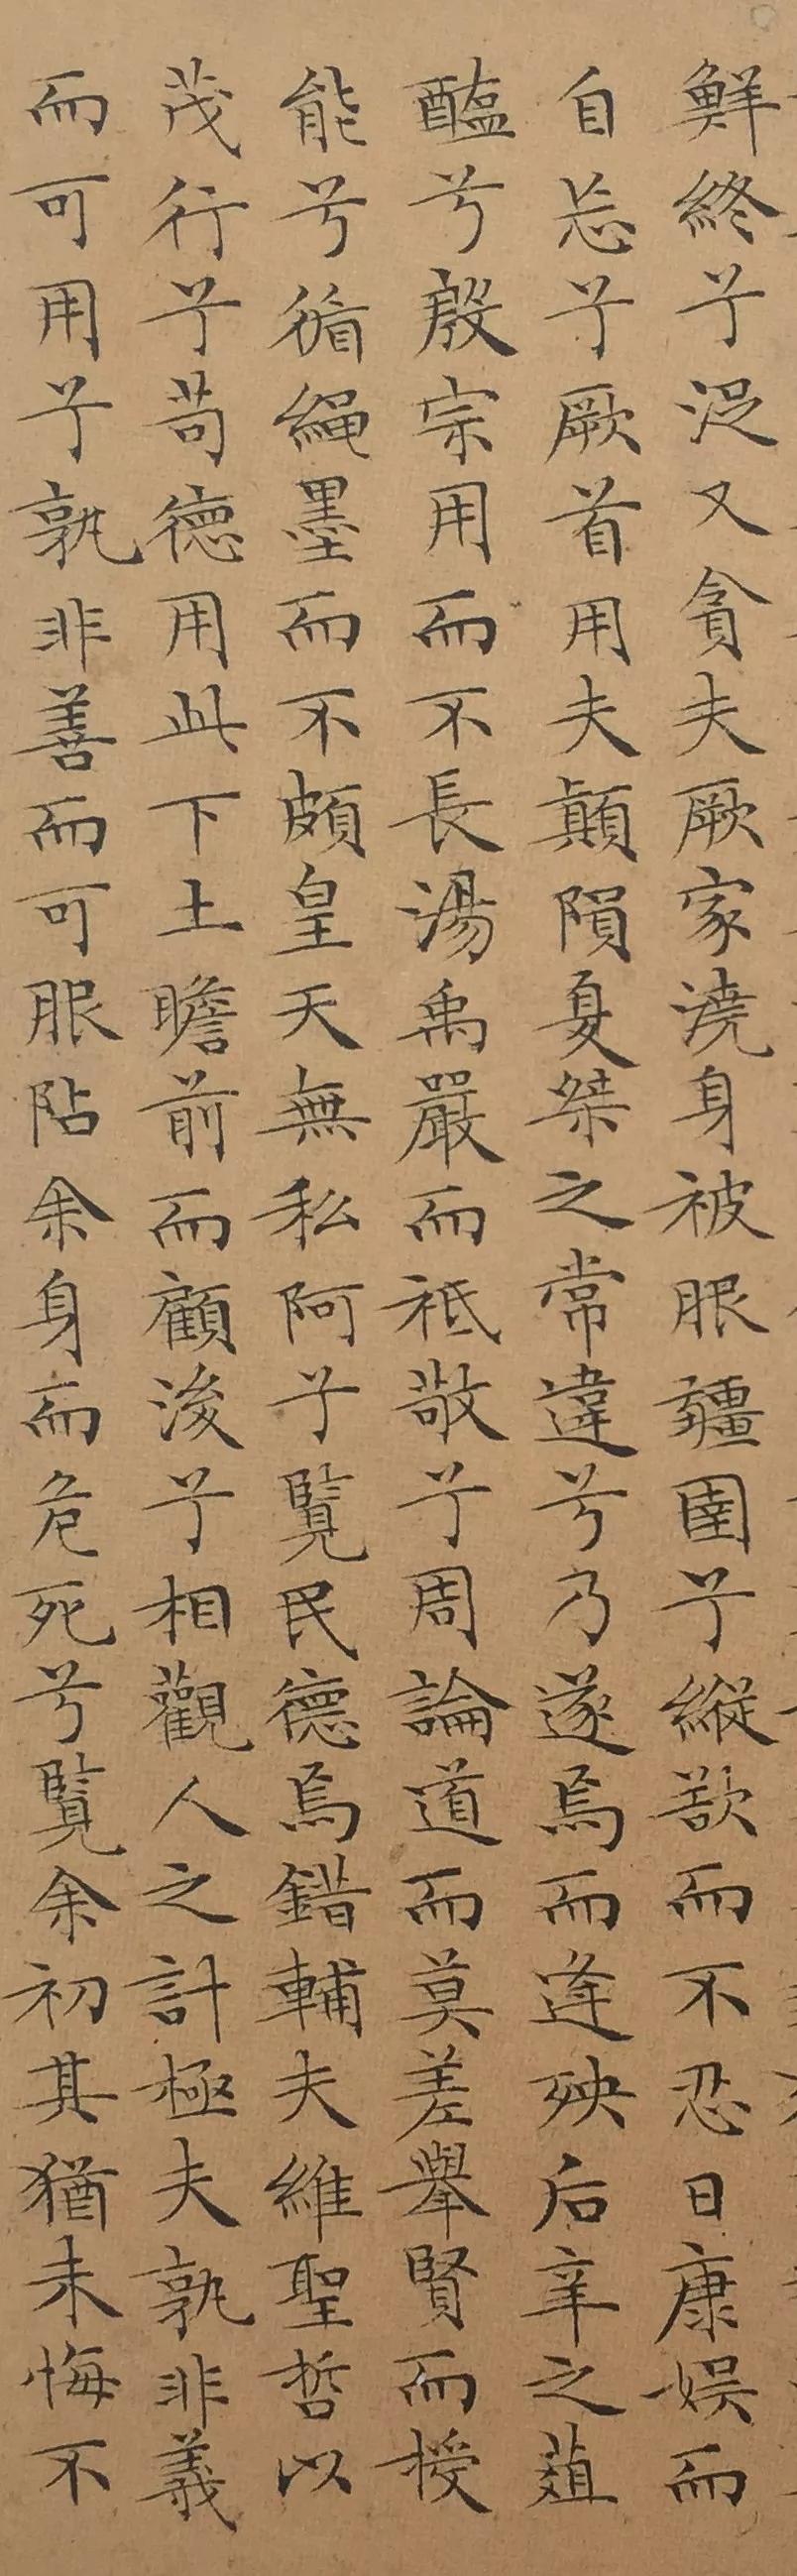 鮮終兮浞又貪夫厥家澆身被服彊圉兮縱欲而不忍日康娯而
自忘兮厥首用夫顛隕夏桀之常違兮乃遂焉而逢殃后辛之菹
醢兮殷宗用而不長湯禹嚴而祗敬兮周論道而莫差舉賢而授
能兮循繩墨而不頗皇天無私阿兮覽民德焉錯輔夫維聖哲以
茂行兮苟德用此下土瞻前而顧後兮相觀人之計極夫孰非義
而可用兮孰非善而可服阽余身而危死兮覽余初其猶未悔不